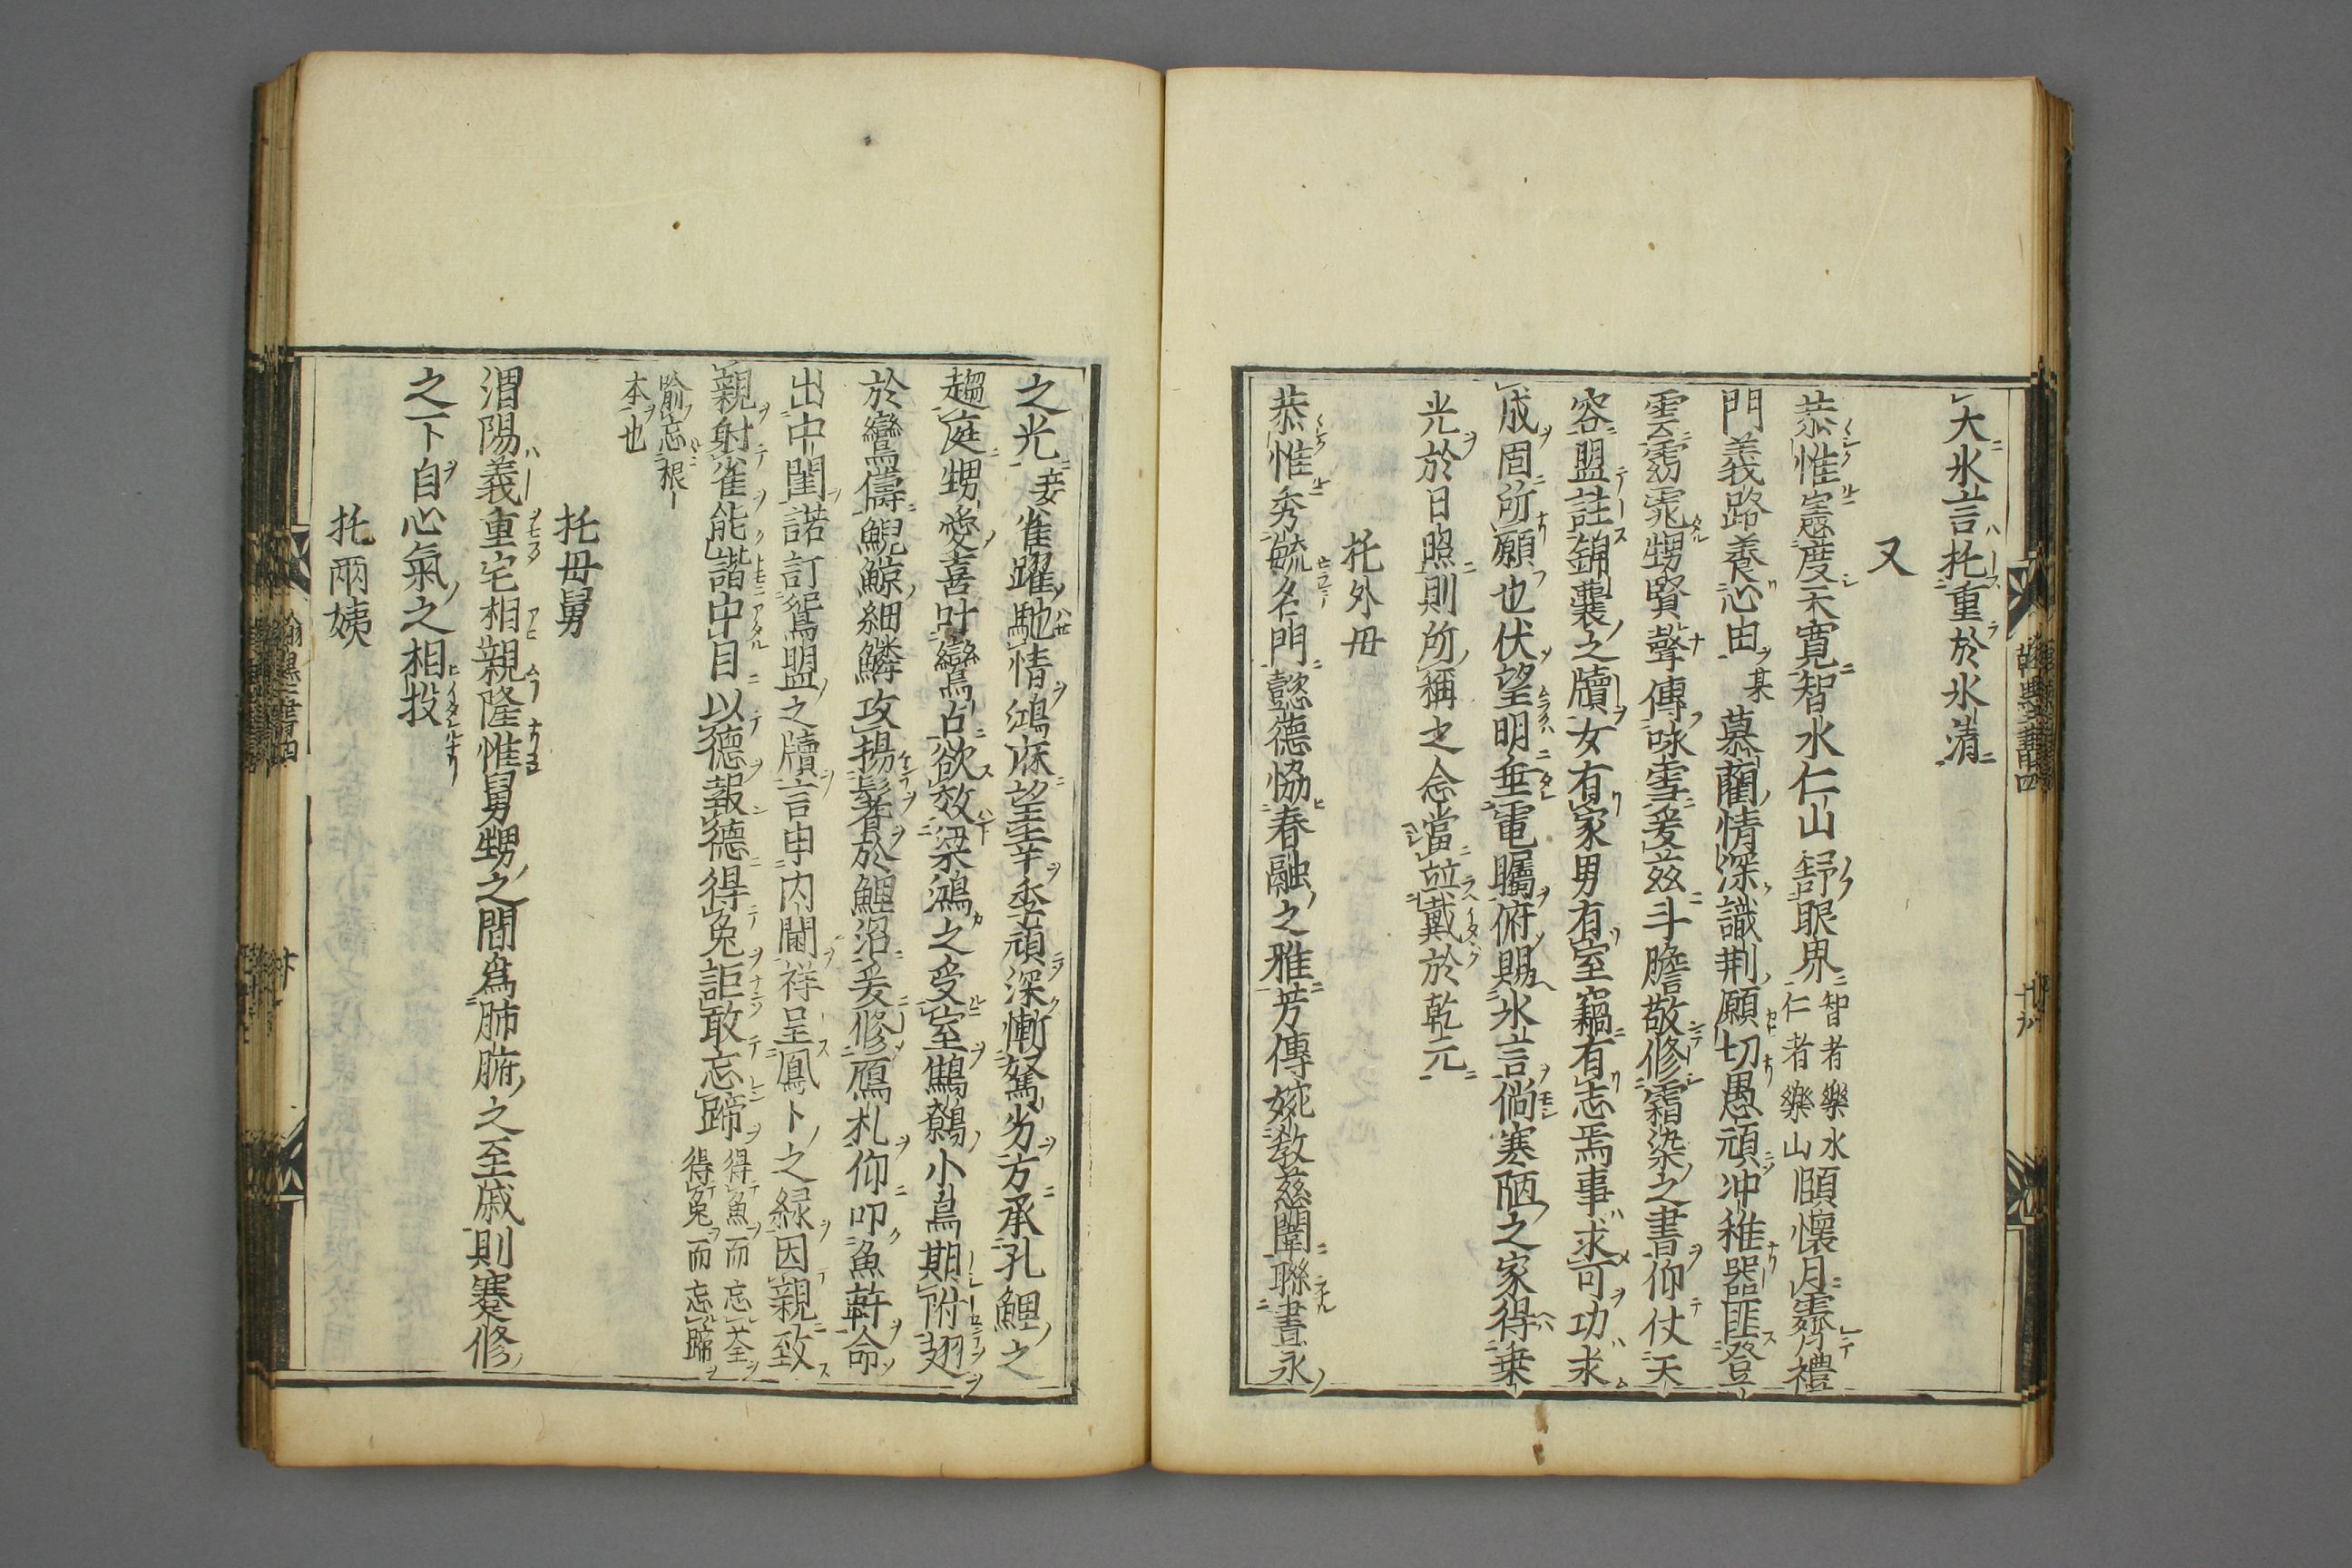 大氷言托重於氷清
又
恭惟寬度天寬智水仁山舒眼界智者樂水仁者樂山頤懷月霽禮
門義路養心田某慕藺情深識荆願切愚頑冲稚器匪登
雲霧霓甥賢聲傳咏雪爰茲斗膽敬修霜染之書仰仗天
容盟註錦囊之牘女有家男有室竊有志焉事求可功求
成固所願也伏望明垂電矚俯賜氷言倘寒陋之家得乗
光於日照則所稱之念當並戴於乾元
托外毋
恭惟秀毓名門懿德恊春融之雅芳傳婉教慈闈聯晝永
之光妾雀躍馳情鴻庥望幸丞頑深慚駑劣方承孔鯉之
趨庭甥愛喜叶鸞占欲效梁鴻之受室鷦鷯小鳥期附翅
於鸞儔鯢鯨細鱗攻揚鬐於鯉沼爰修鴈札仰叩魚軒命
出中閨諾訂鴛盟之牘言申内閫祥呈鳳卜之緑因親致
親射雀能諧中目以德報德得兔詎敢忘蹄得魚而忘荃得兔而忘蹄
喻忘根
本也
托毋舅
渭陽義重宅相親隆惟舅甥之間爲肺腑之至戚則蹇修
之下自心氣之相投
托兩姨